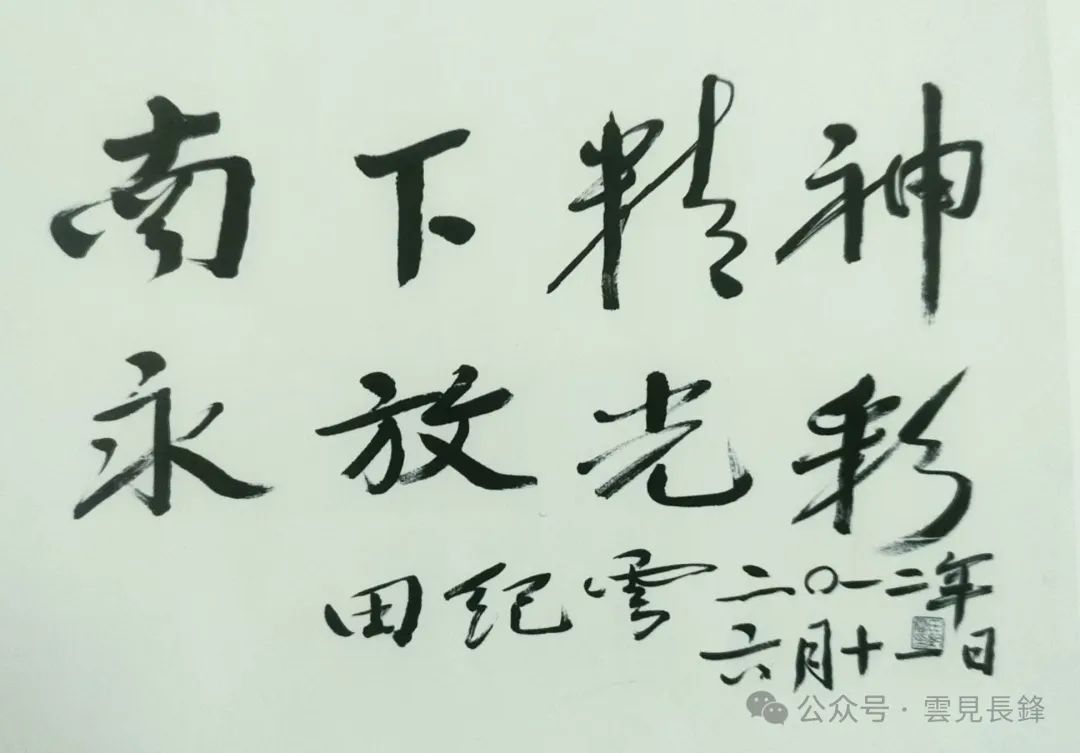 南下精神
永放光彩
田纪雲 二〇一二年
六月十一日
公众号·雲見長鋒